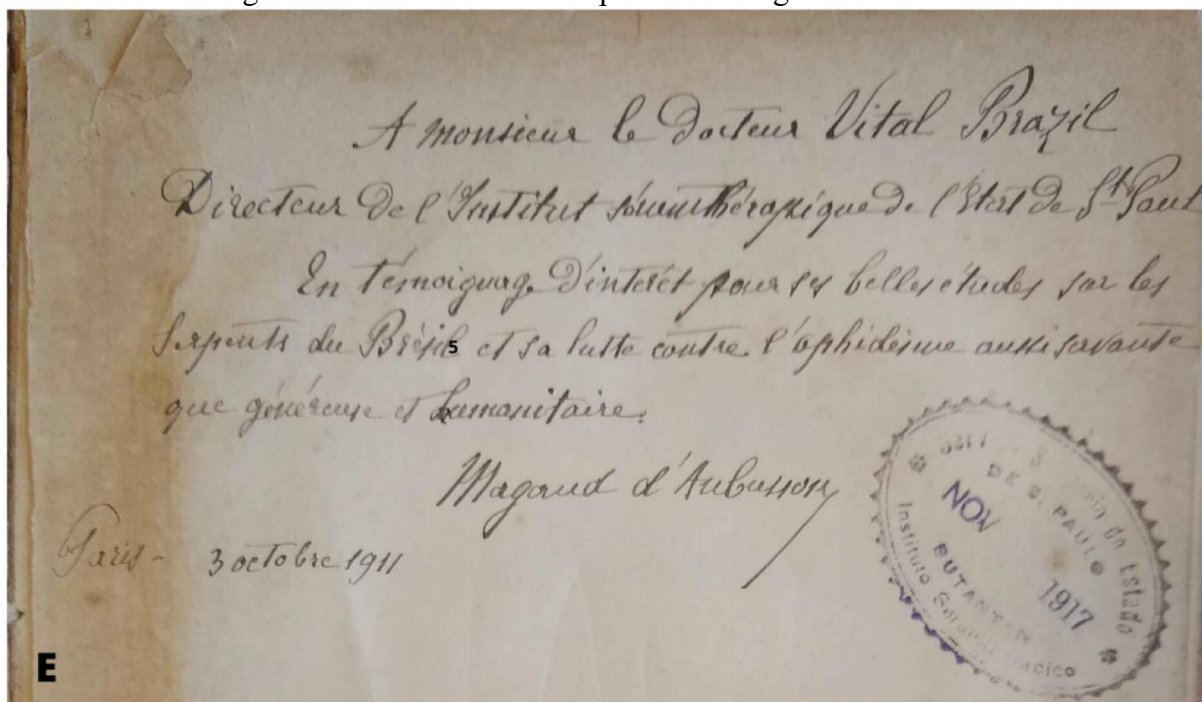 A monsieur le Docteur Vital Brazil
Directeur De l'Institut sérumthérapique de l'Etat de St Paul
En témoignage D'intérêt pour ses belles études sur les
serpents du Brésil 5 et sa lutte contre l'ophidisme aussi savante
que généreuse et humanitaire.
Magaud d'Aubusson
Paris - 3 octobre 1911
DE S. PAULO
NOV
1917
BUTANTAN
Instituto
de Estado
E